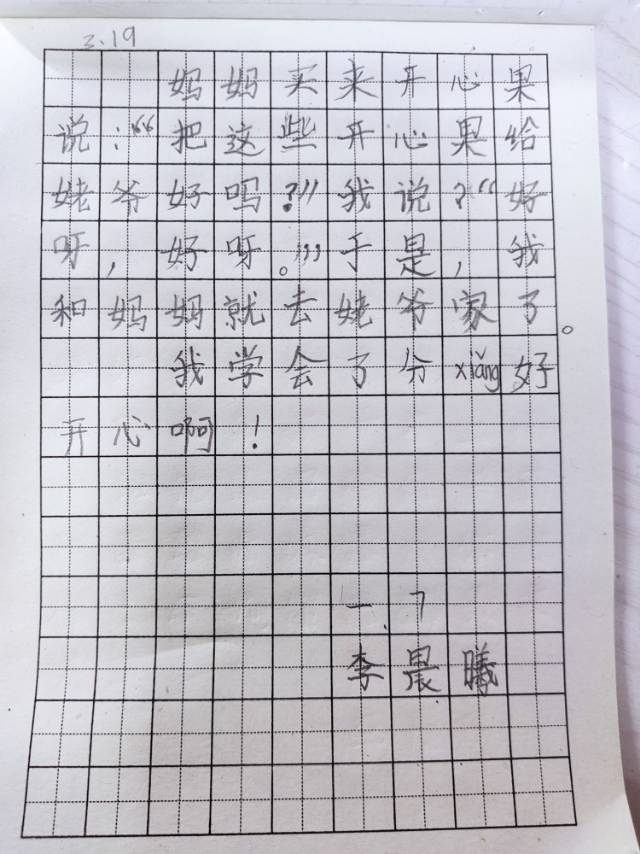 3.19
妈妈买来开心果
说：“把这些开心果给
姥爷好吗？”我说？“好
呀，好呀。”于是，我
和妈妈就去姥爷家了。
我学会了分xiǎng好
开心啊！
一.7
李晨曦